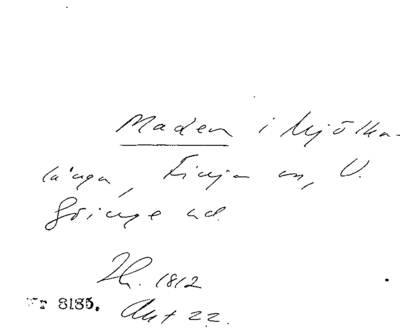 Maden i Mjölka-
långa, Finja sn, V.
Göinge hd.
Lh. 1812
Nr 8185. Akt 22.